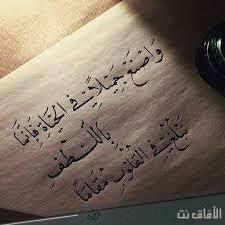 وَاصْنَعْ جَمِيلًا فِي الحَيَاةِ فَإِنَّمَا
بِاللُّطْفِ
تَبْلُغُ فِي القُلُوبِ مَقَامَا
الآفاق نت